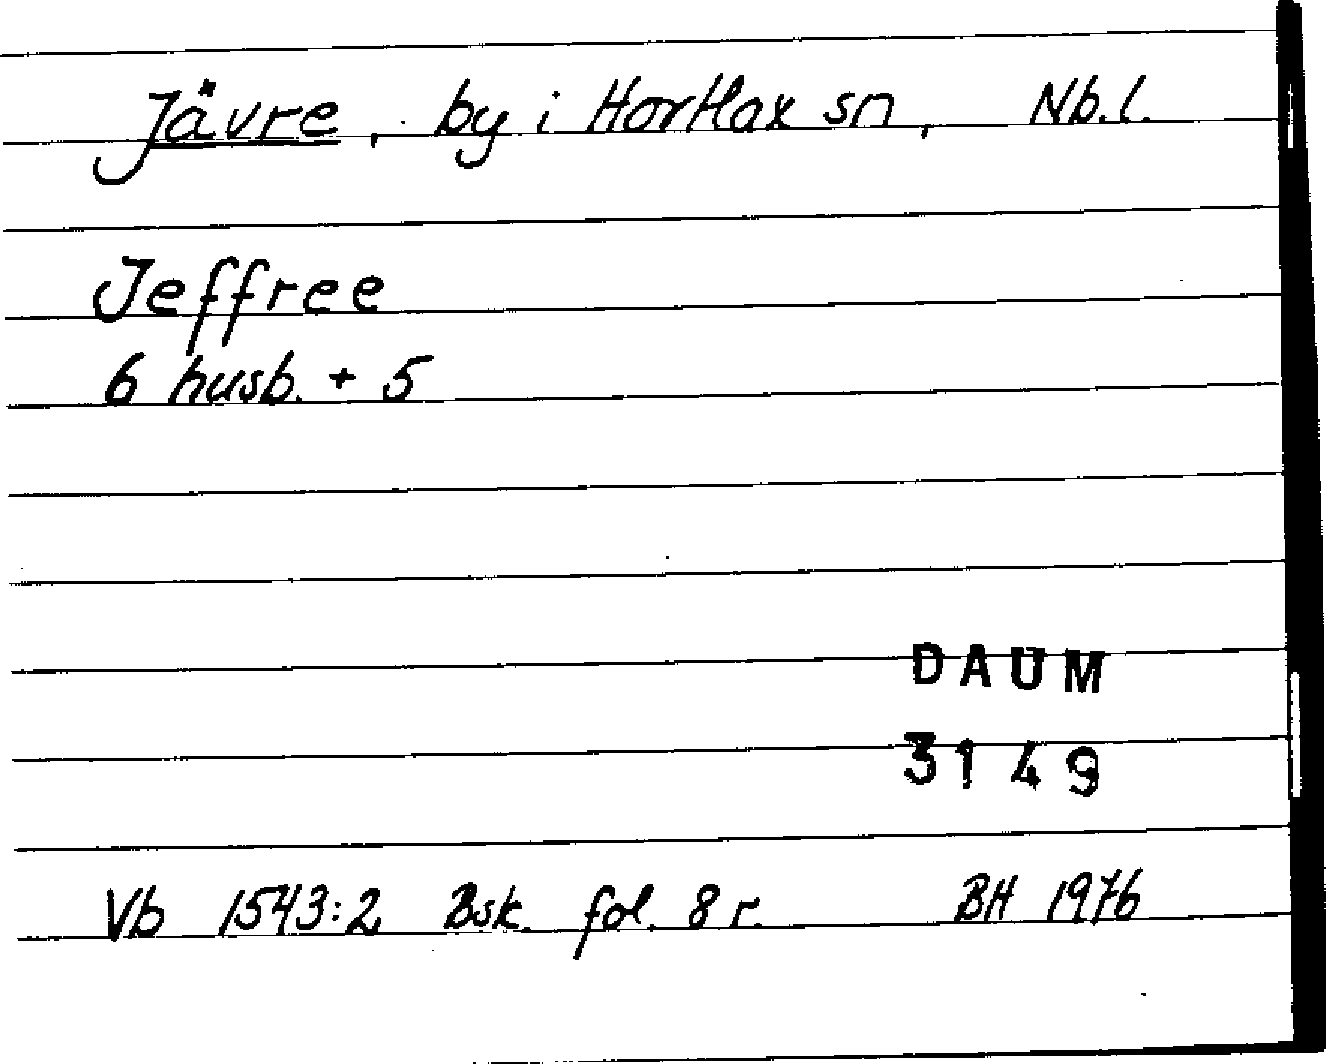 Jävre, by i Hortlax sn, Nb.l.
Jeffree
6 husb. + 5
DAUM
3149
Vb 1543:2 Bsk. fol. 8 r. BH 1976